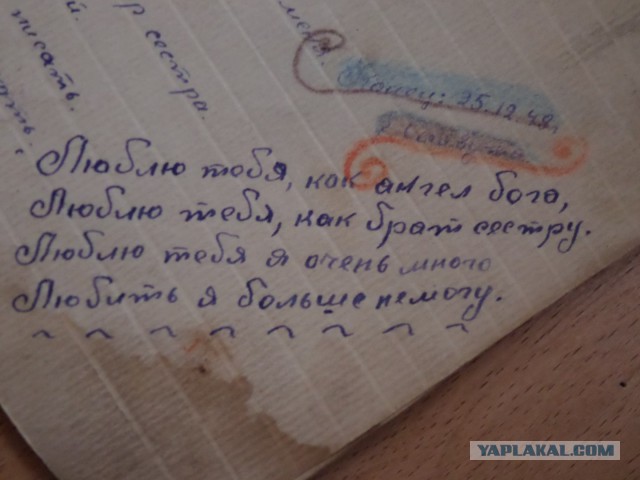 писать.
р сестра.
меня.
Конец: 25.12.48г
Люблю тебя, как ангел бога,
Люблю тебя, как брат сестру.
Люблю тебя я очень много
Любить я больше немогу.
YAPLAKAL.COM